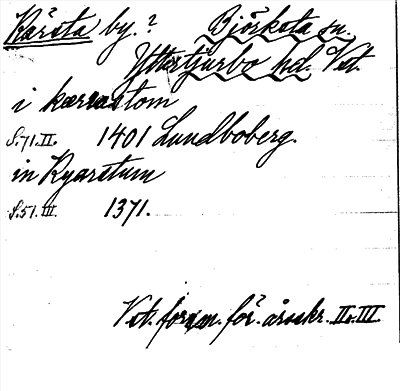 Kärsta by.? Björksta sn.
Yttertjurbo hd. Vst.
i kærrastom
S.71.II. 1401 Lundboberg.
in Kyarstum
S.51.III. 1371.
Vst. fornm. för. årsskr. II o. III.